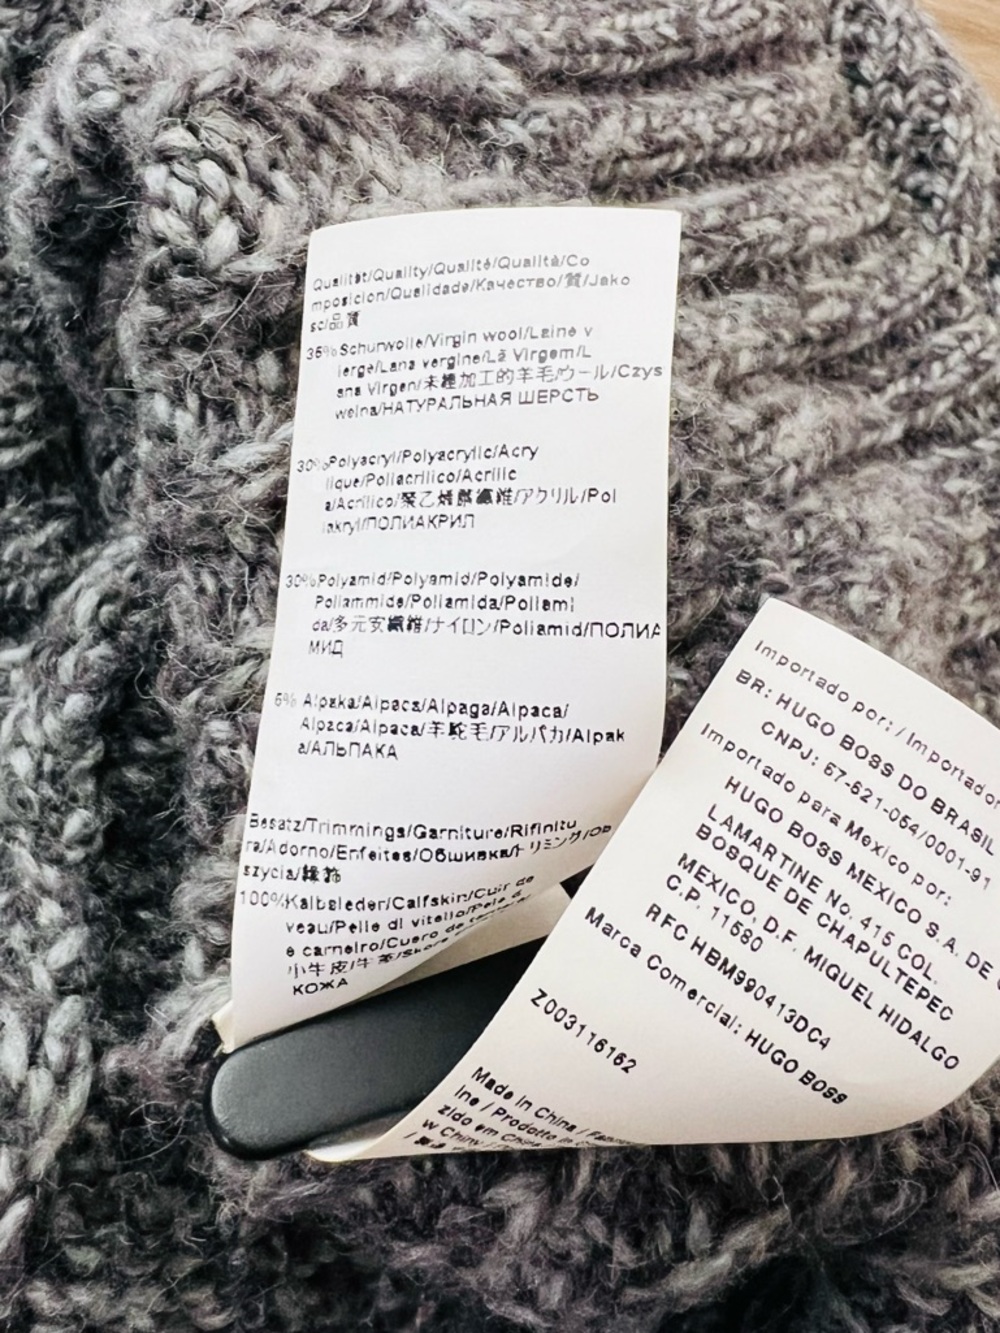 Qualität/Quality/Qualité/Qualità/Co
mposicion/Qualidade/Качество/質/Jako
sc/品質
35%Schurwolle/Virgin wool/Laine v
ierge/Lana vergine/Lã Virgem/L
ana Virgen/未經加工的羊毛/ウール/Czys
welna/НАТУРАЛЬНАЯ ШЕРСТЬ
30%Polyacryl/Polyacrylic/Acry
lique/Poliacrilico/Acrilic
a/Acrilico/聚乙烯醇纖維/アクリル/Pol
iakryl/ПОЛИАКРИЛ
30%Polyamid/Polyamid/Polyamide/
Poliammide/Poliamida/Poliami
da/多元安纖維/ナイロン/Poliamid/ПОЛИА
МИД
5% Alpaka/Alpaca/Alpaga/Alpaca/
Alpaca/Alpaca/羊駝毛/アルパカ/Alpak
a/АЛЬПАКА
Besatz/Trimmings/Garniture/Rifinitu
ra/Adorno/Enfeites/Обшивка/トリミング/Ob
szycia/緣飾
100%Kalbsleder/Calfskin/Cuir de
veau/Pelle di vitello/Pele d
e carneiro/Cuero de
小牛皮/牛革/Skóra
КОЖА
Importado por: / Importado
BR: HUGO BOSS DO BRASIL
CNPJ: 67-621-054/0001-91
Importado para Mexico por:
HUGO BOSS MEXICO S.A. DE
LAMARTINE No. 415 COL.
BOSQUE DE CHAPULTEPEC
MEXICO, D.F. MIGUEL HIDALGO
C.P. 11580
RFC HBM990413DC4
Marca Comercial: HUGO BOSS
Z003116162
Made in China /
ine / Prodotto in
zido em China
w Chiny